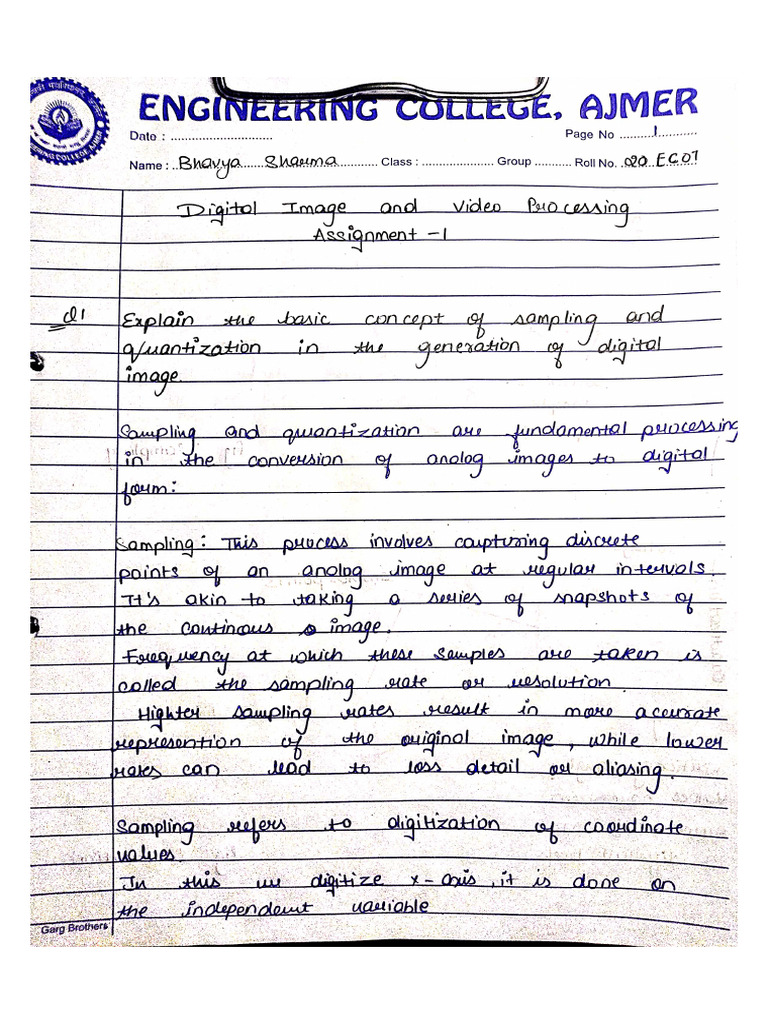 ENGINEERING COLLEGE, AJMER
Date : ............................ Page No ..........1...........
Name : ..Bhavya Sharma........... Class : .................... Group .......... Roll No. 020 EC07
Digital Image and Video Processing
Assignment -1
Q1 Explain the basic concept of sampling and
quantization in the generation of digital
image.
Sampling and quantization are fundamental processing
in the conversion of analog images to digital
form:
Sampling: This process involves capturing discrete
points of an analog image at regular intervals.
It's akin to taking a series of snapshots of
the continous image.
Frequency at which these samples are taken is
called the sampling rate or resolution.
Highter sampling rates result in more accurate
represention of the original image, while lower
rates can lead to loss detail or aliasing.
Sampling refers to digitization of coordinate
values.
In this we digitize x-axis, it is done on
the independent variable
Garg Brothers